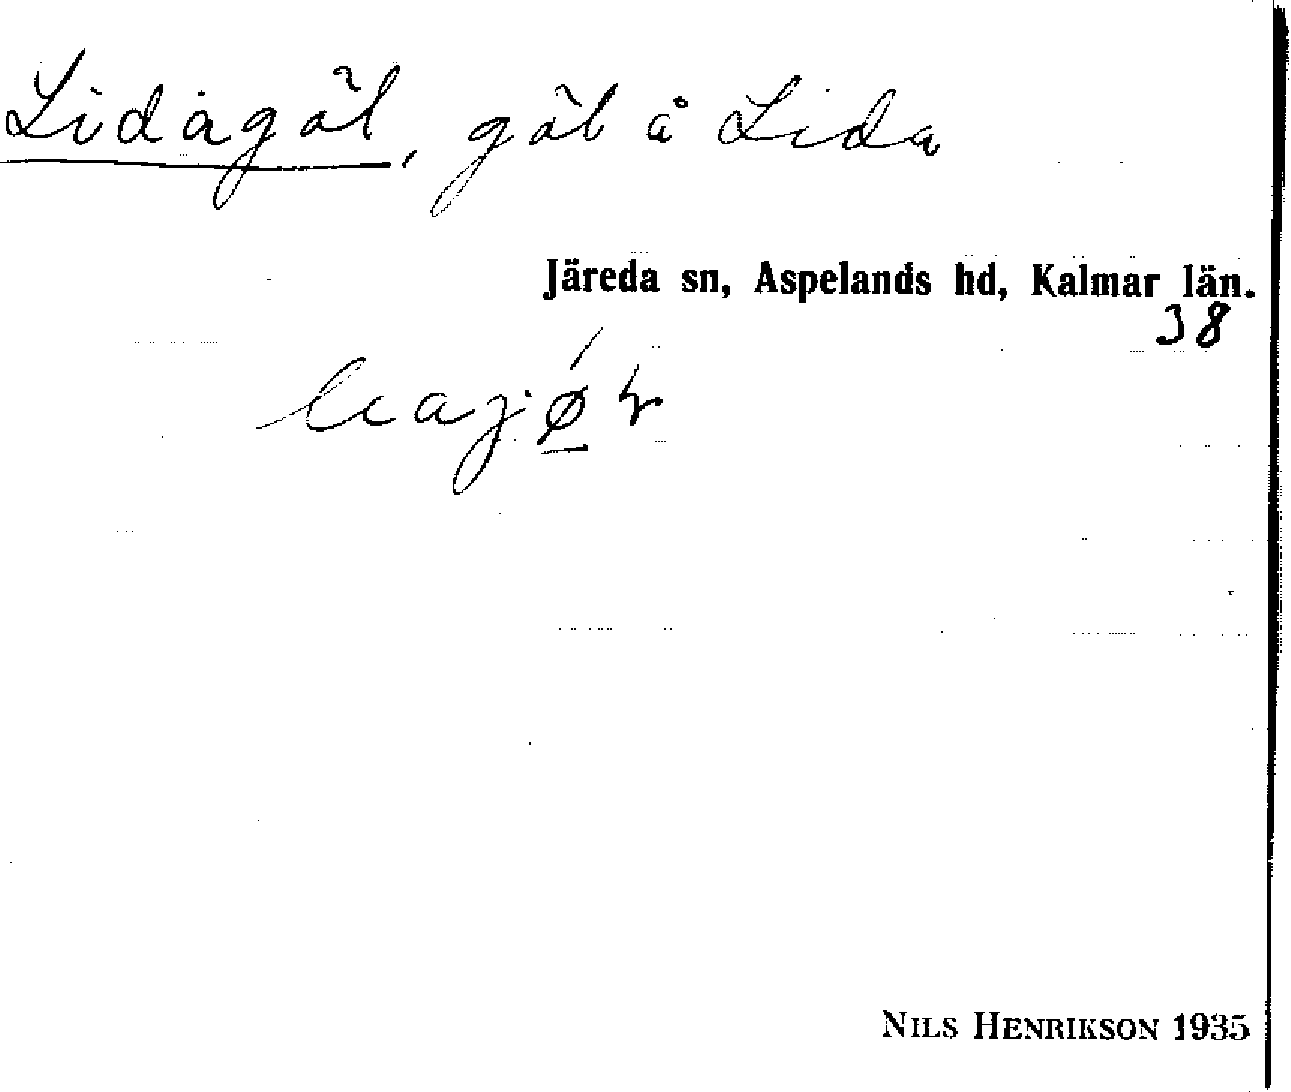 Lidagöl, göl å Lida
Järeda sn, Aspelands hd, Kalmar län.
38
NILS HENRIKSON 1935